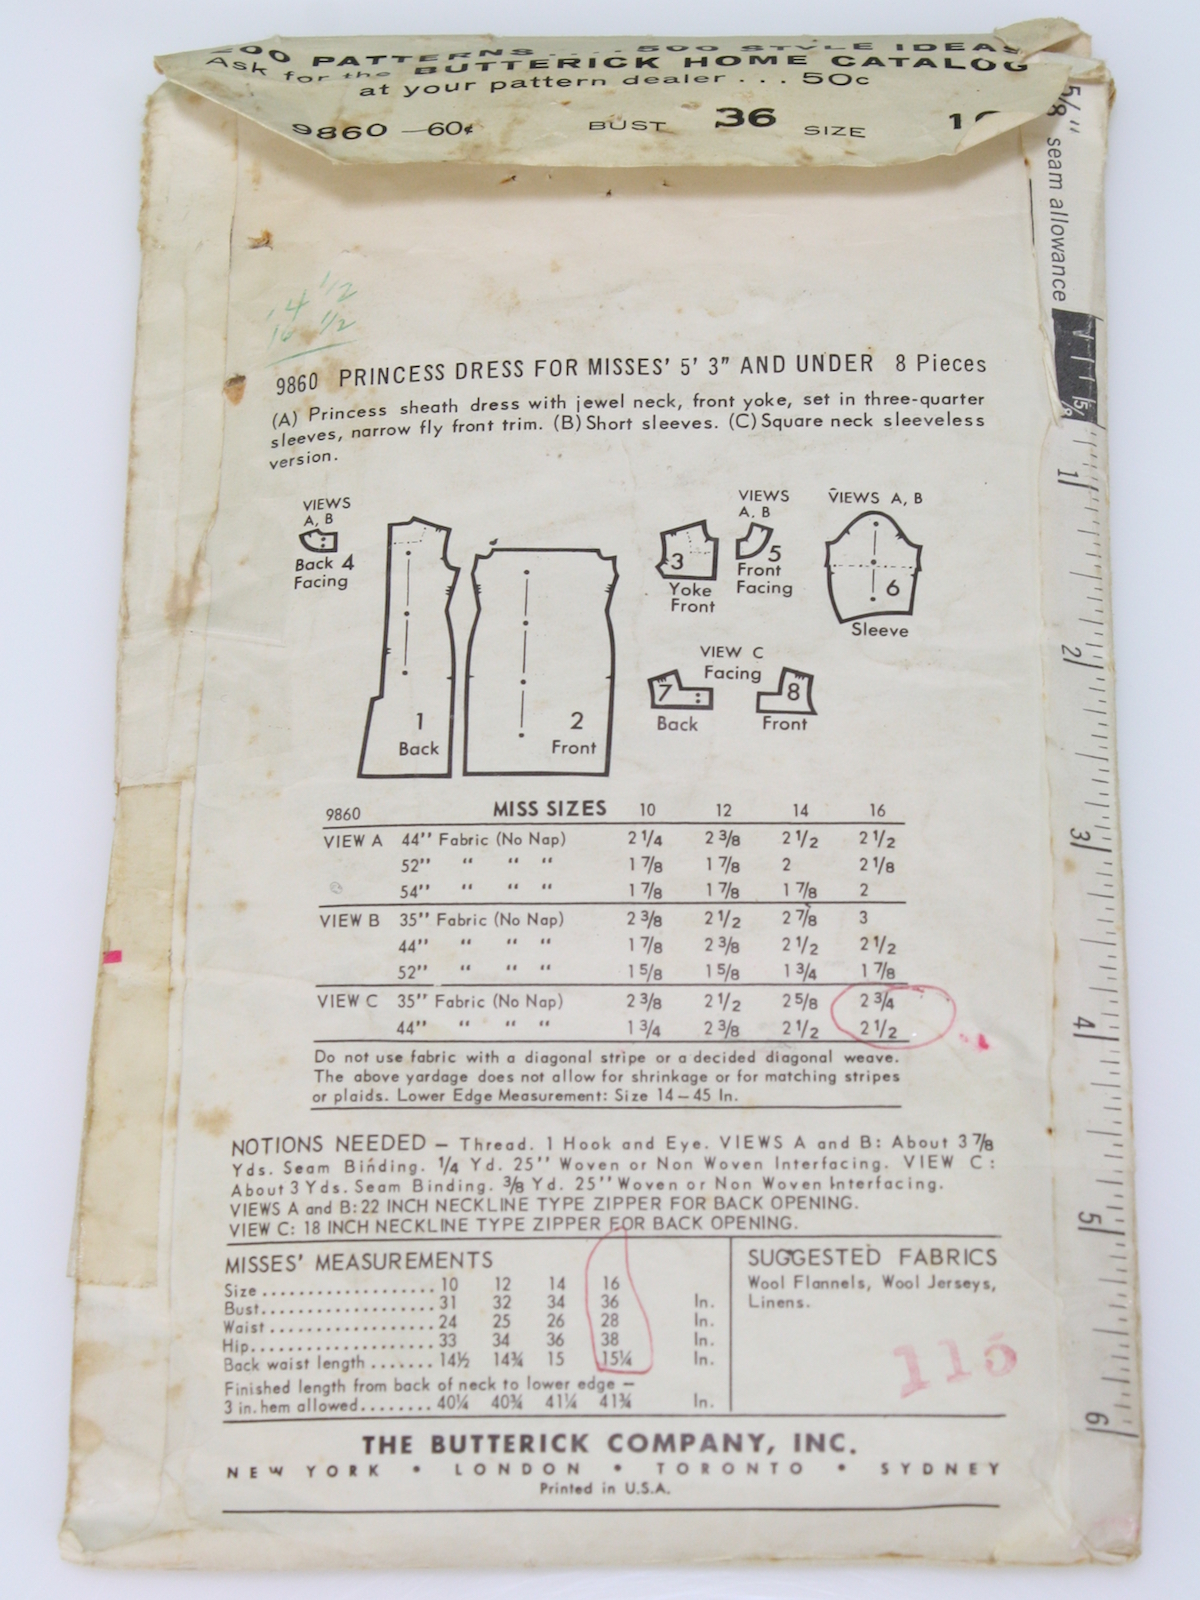 PATTERNS....500 STYLE IDEAS
Ask for the BUTTERICK HOME CATALOG
at your pattern dealer . . . 50c
9860 —60¢ BUST 36 SIZE
5/8" seam allowance
14 1/2
16 1/2
9860 PRINCESS DRESS FOR MISSES' 5' 3" AND UNDER 8 Pieces
(A) Princess sheath dress with jewel neck, front yoke, set in three-quarter
sleeves, narrow fly front trim. (B) Short sleeves. (C) Square neck sleeveless
version.
VIEWS
A, B
Back 4
Facing
1
Back
2
Front
3
Yoke
Front
VIEWS
A. B
5
Front
Facing
VIEWS A, B
6
Sleeve
VIEW C
Facing
7
Back
8
Front
9860 MISS SIZES 10 12 14 16
VIEW A 44" Fabric (No Nap) 2 1/4 2 3/8 2 1/2 2 1/2
52" " " " 1 7/8 1 7/8 2 2 1/8
54" " " " 1 7/8 1 7/8 1 7/8 2
VIEW B 35" Fabric (No Nap) 2 3/8 2 1/2 2 7/8 3
44" " " " 1 7/8 2 3/8 2 1/2 2 1/2
52" " " " 1 5/8 1 5/8 1 3/4 1 7/8
VIEW C 35" Fabric (No Nap) 2 3/8 2 1/2 2 5/8 2 3/4
44" " " " 1 3/4 2 3/8 2 1/2 2 1/2
Do not use fabric with a diagonal stripe or a decided diagonal weave.
The above yardage does not allow for shrinkage or for matching stripes
or plaids. Lower Edge Measurement: Size 14—45 In.
NOTIONS NEEDED — Thread. 1 Hook and Eye. VIEWS A and B: About 3 7/8
Yds. Seam Binding. 1/4 Yd. 25" Woven or Non Woven Interfacing. VIEW C:
About 3 Yds. Seam Binding. 3/8 Yd. 25" Woven or Non Woven Interfacing.
VIEWS A and B: 22 INCH NECKLINE TYPE ZIPPER FOR BACK OPENING.
VIEW C: 18 INCH NECKLINE TYPE ZIPPER FOR BACK OPENING.
MISSES' MEASUREMENTS
Size..................... 10 12 14 16
Bust..................... 31 32 34 36 In.
Waist.................... 24 25 26 28 In.
Hip...................... 33 34 36 38 In.
Back waist length ....... 14½ 14¾ 15 15¼ In.
Finished length from back of neck to lower edge —
3 in. hem allowed........ 40¼ 40¾ 41¼ 41¾ In.
SUGGESTED FABRICS
Wool Flannels, Wool Jerseys,
Linens.
THE BUTTERICK COMPANY, INC.
NEW YORK • LONDON • TORONTO • SYDNEY
Printed in U.S.A.
5/8
1
2
3
4
5
6